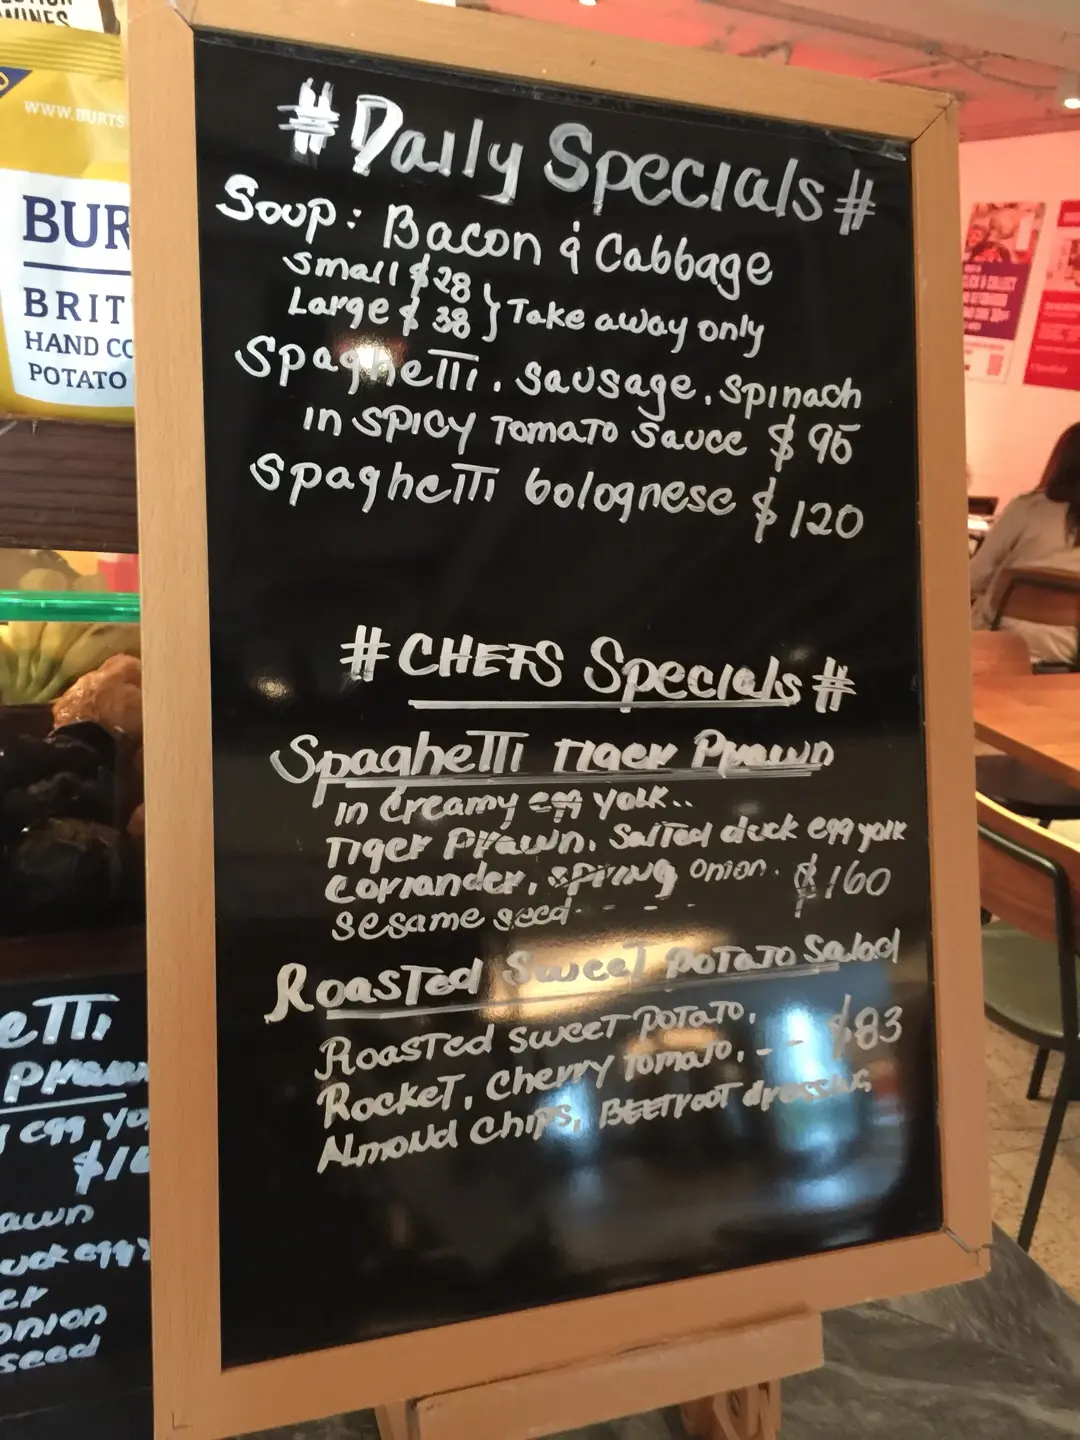 WINES
WWW.BURTS
BUR
BRIT
HAND CO
POTATO
#Daily Specials#
Soup: Bacon & Cabbage
Small $28
Large $38 } Take away only
Spaghetti, sausage, spinach
in spicy tomato sauce $95
Spaghetti bolognese $120
#CHEFS Specials#
Spaghetti Tiger Prawn
in creamy egg yolk..
Tiger Prawn, Salted duck egg yolk
coriander, spring onion. $160
sesame seed - - - -
Roasted Sweet potato Salad
Roasted sweet potato,
Rocket, cherry tomato, - - $83
Almond chips, Beetroot dressing
etti
prawn
egg yo
$16
awn
uck egg y
er
onion
seed